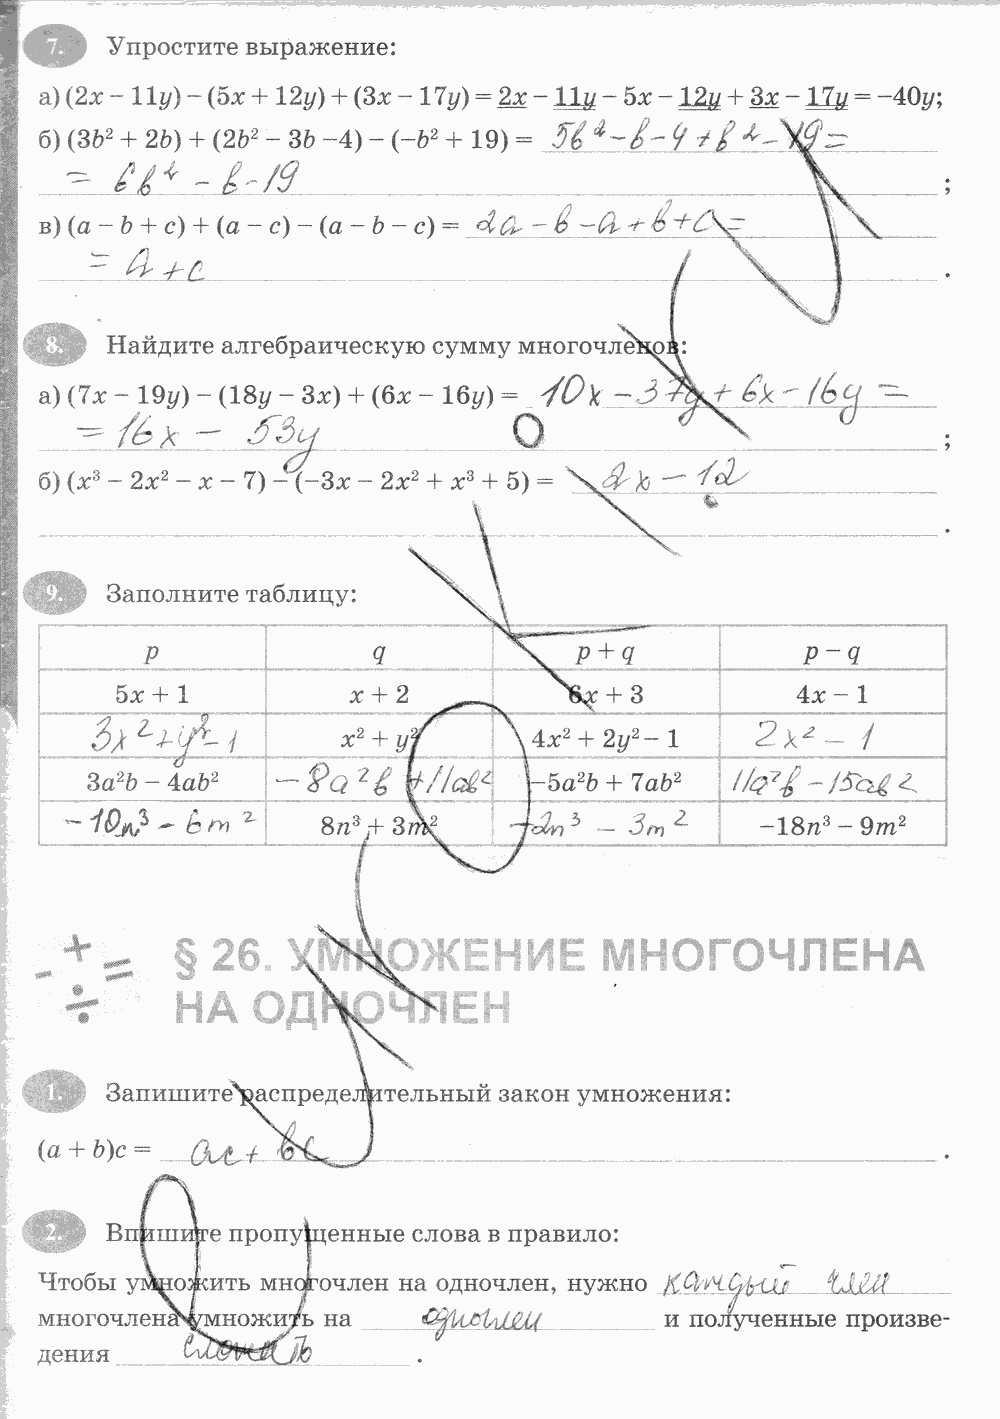 7. Упростите выражение:
а) (2x − 11y) − (5x + 12y) + (3x − 17y) = 2x − 11y − 5x − 12y + 3x − 17y = −40y;
б) (3b² + 2b) + (2b² − 3b −4) − (−b² + 19) = 5b² − b − 4 + b² − 19 =
= 6b² − b − 19 ;
в) (a − b + c) + (a − c) − (a − b − c) = 2a − b − a + b + c =
= a + c .
8. Найдите алгебраическую сумму многочленов:
а) (7x − 19y) − (18y − 3x) + (6x − 16y) = 10x − 37y + 6x − 16y =
= 16x − 53y ;
б) (x³ − 2x² − x − 7) − (−3x − 2x² + x³ + 5) = 2x − 12
.
9. Заполните таблицу:
p q p + q p − q
5x + 1 x + 2 6x + 3 4x − 1
3x² + y² − 1 x² + y² 4x² + 2y² − 1 2x² − 1
3a²b − 4ab² −8a²b + 11ab² −5a²b + 7ab² 11a²b − 15ab²
−10n³ − 6m² 8n³ + 3m² −2n³ − 3m² −18n³ − 9m²
§ 26. УМНОЖЕНИЕ МНОГОЧЛЕНА
НА ОДНОЧЛЕН
1. Запишите распределительный закон умножения:
(a + b)c = ac + bc .
2. Впишите пропущенные слова в правило:
Чтобы умножить многочлен на одночлен, нужно каждый член
многочлена умножить на одночлен и полученные произве-
дения сложить .